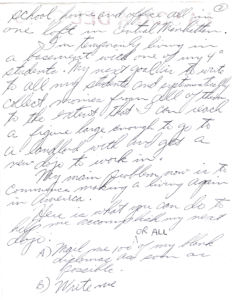 school, home and office all in
one loft in Central Manhattan.
I'm temporarily living in
a basement with one of my
students. My next goal is to write
to all my students and
collect monies from all of them
to the extent that I can reach
a figure large enough to go to
a landlord with and get a
new dojo to work in.
My main problem now is to
commence making a living again
in America.
Here is what you can do to
help me accomplish my next
dojo.
OR ALL
A) Mail me 100 of my blank
diplomas as soon as
possible.
B) Write me